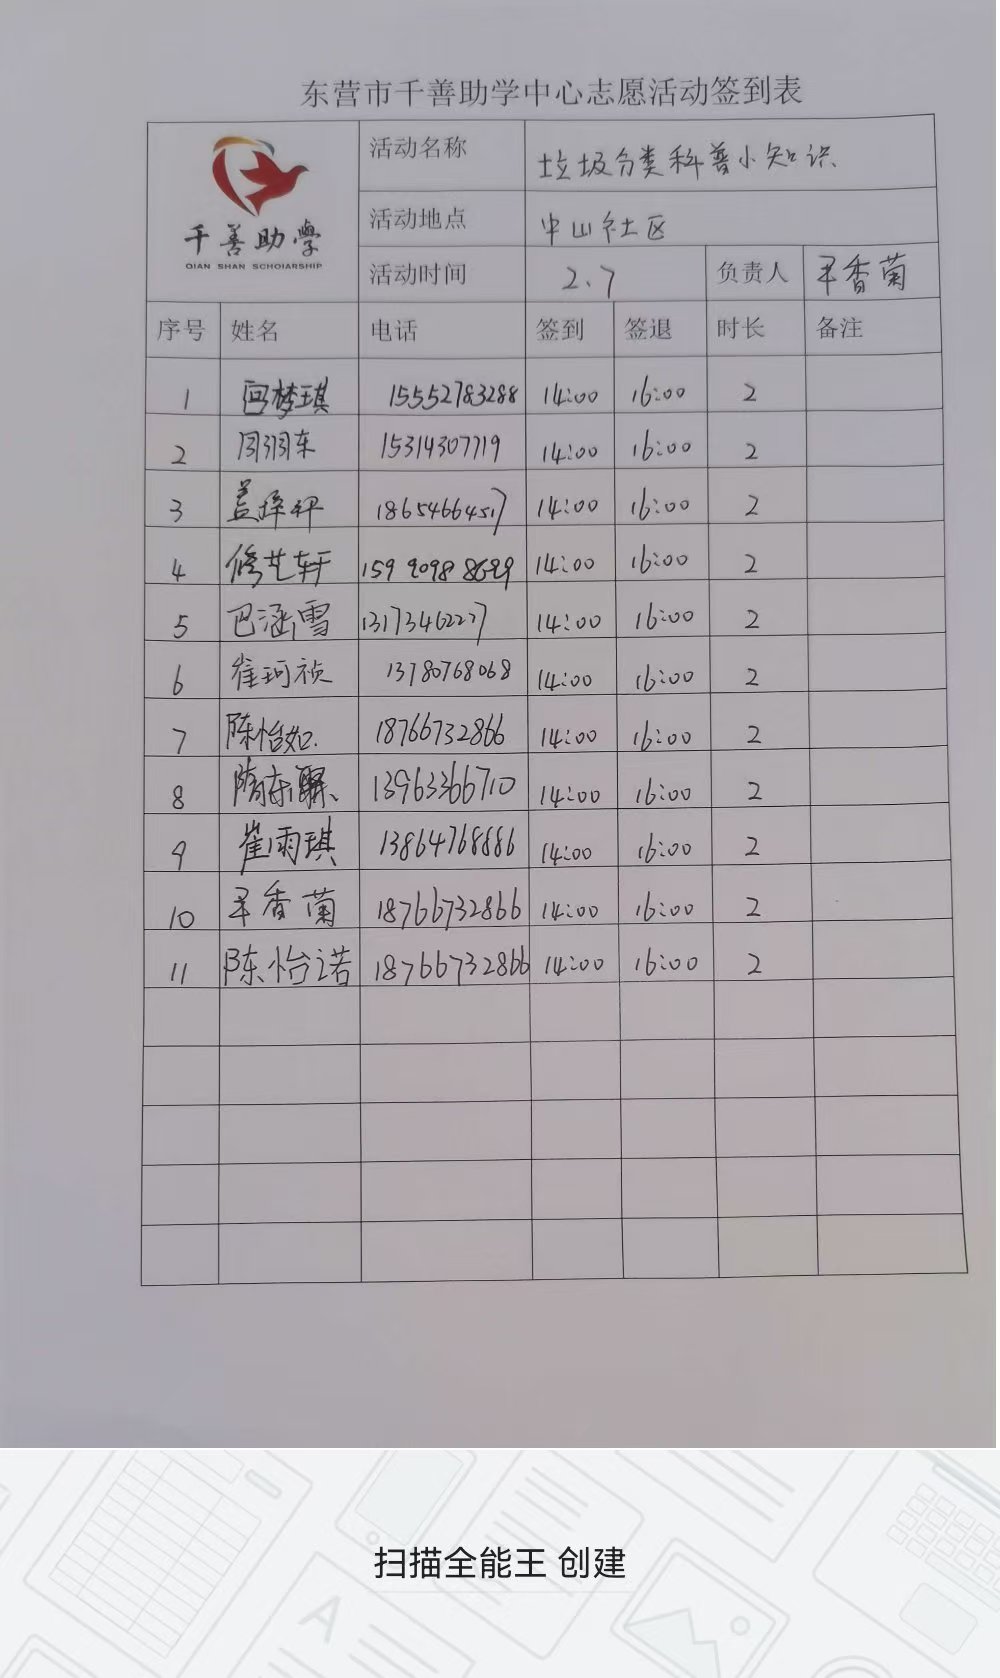 东营市千善助学中心志愿活动签到表
千善助学
QIAN SHAN SCHOIARSHIP
活动名称 垃圾分类科普小知识
活动地点 中山社区
活动时间 2.7 负责人 香菊
序号 姓名 电话 签到 签退 时长 备注
1 梦琪 15552783288 14:00 16:00 2
2 15314307719 14:00 16:00 2
3 盖 18654664517 14:00 16:00 2
4 修艺轩 14:00 16:00 2
5 巴涵雪 13173462227 14:00 16:00 2
6 崔珂祯 13780768068 14:00 16:00 2
7 陈怡如 18766732866 14:00 16:00 2
8 隋东 13963366710 14:00 16:00 2
9 崔雨琪 13864768886 14:00 16:00 2
10 香菊 18766732866 14:00 16:00 2
11 陈怡诺 18766732866 14:00 16:00 2
扫描全能王 创建